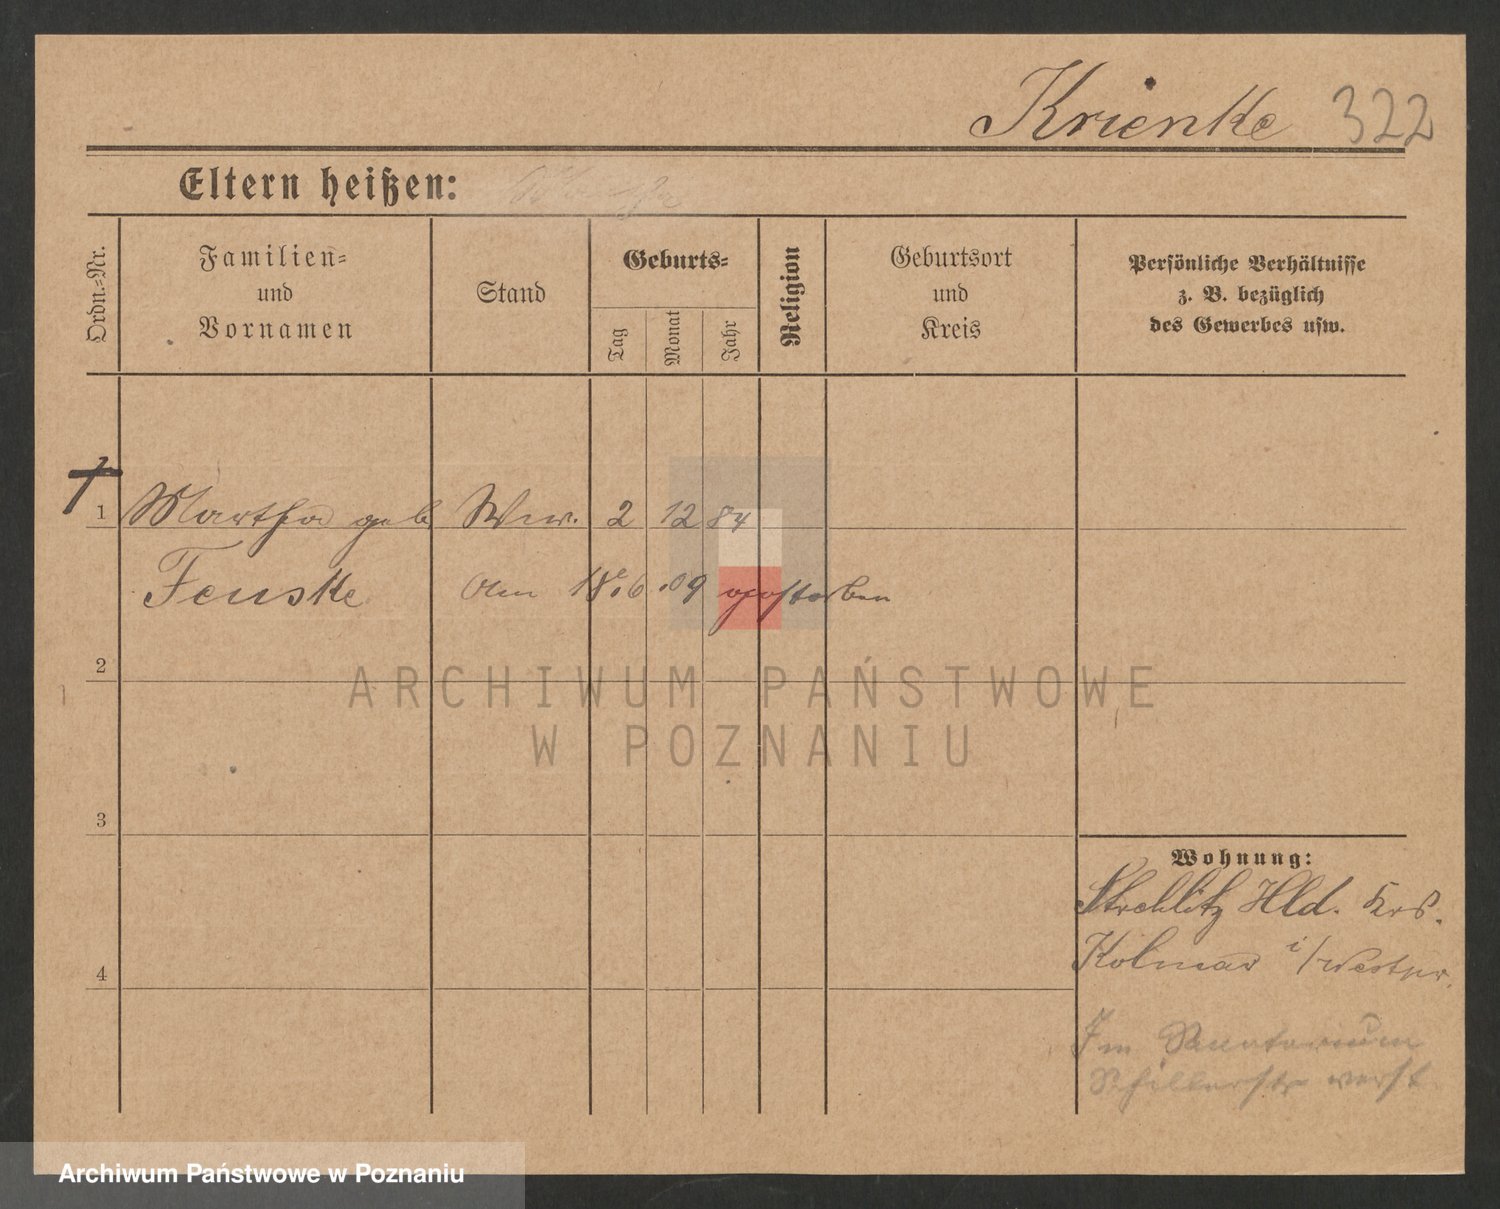 Krienke 322
Eltern heißen:
Ordn.-Nr.
Familien-
und
Vornamen
Stand
Geburts-
Tag
Monat
Jahr
Religion
Geburtsort
und
Kreis
Persönliche Verhältnisse
z. B. bezüglich
des Gewerbes usw.
1 Martha geb. Ww. 2 12 84
Fenske Am 18.6.09 gestorben
2
3
4
Wohnung:
Strehlitz Hld. Krs.
Kolmar i/Westpr.
Im Sanatorium
Schillerstr verst.
ARCHIWUM PAŃSTWOWE
W POZNANIU
Archiwum Państwowe w Poznaniu